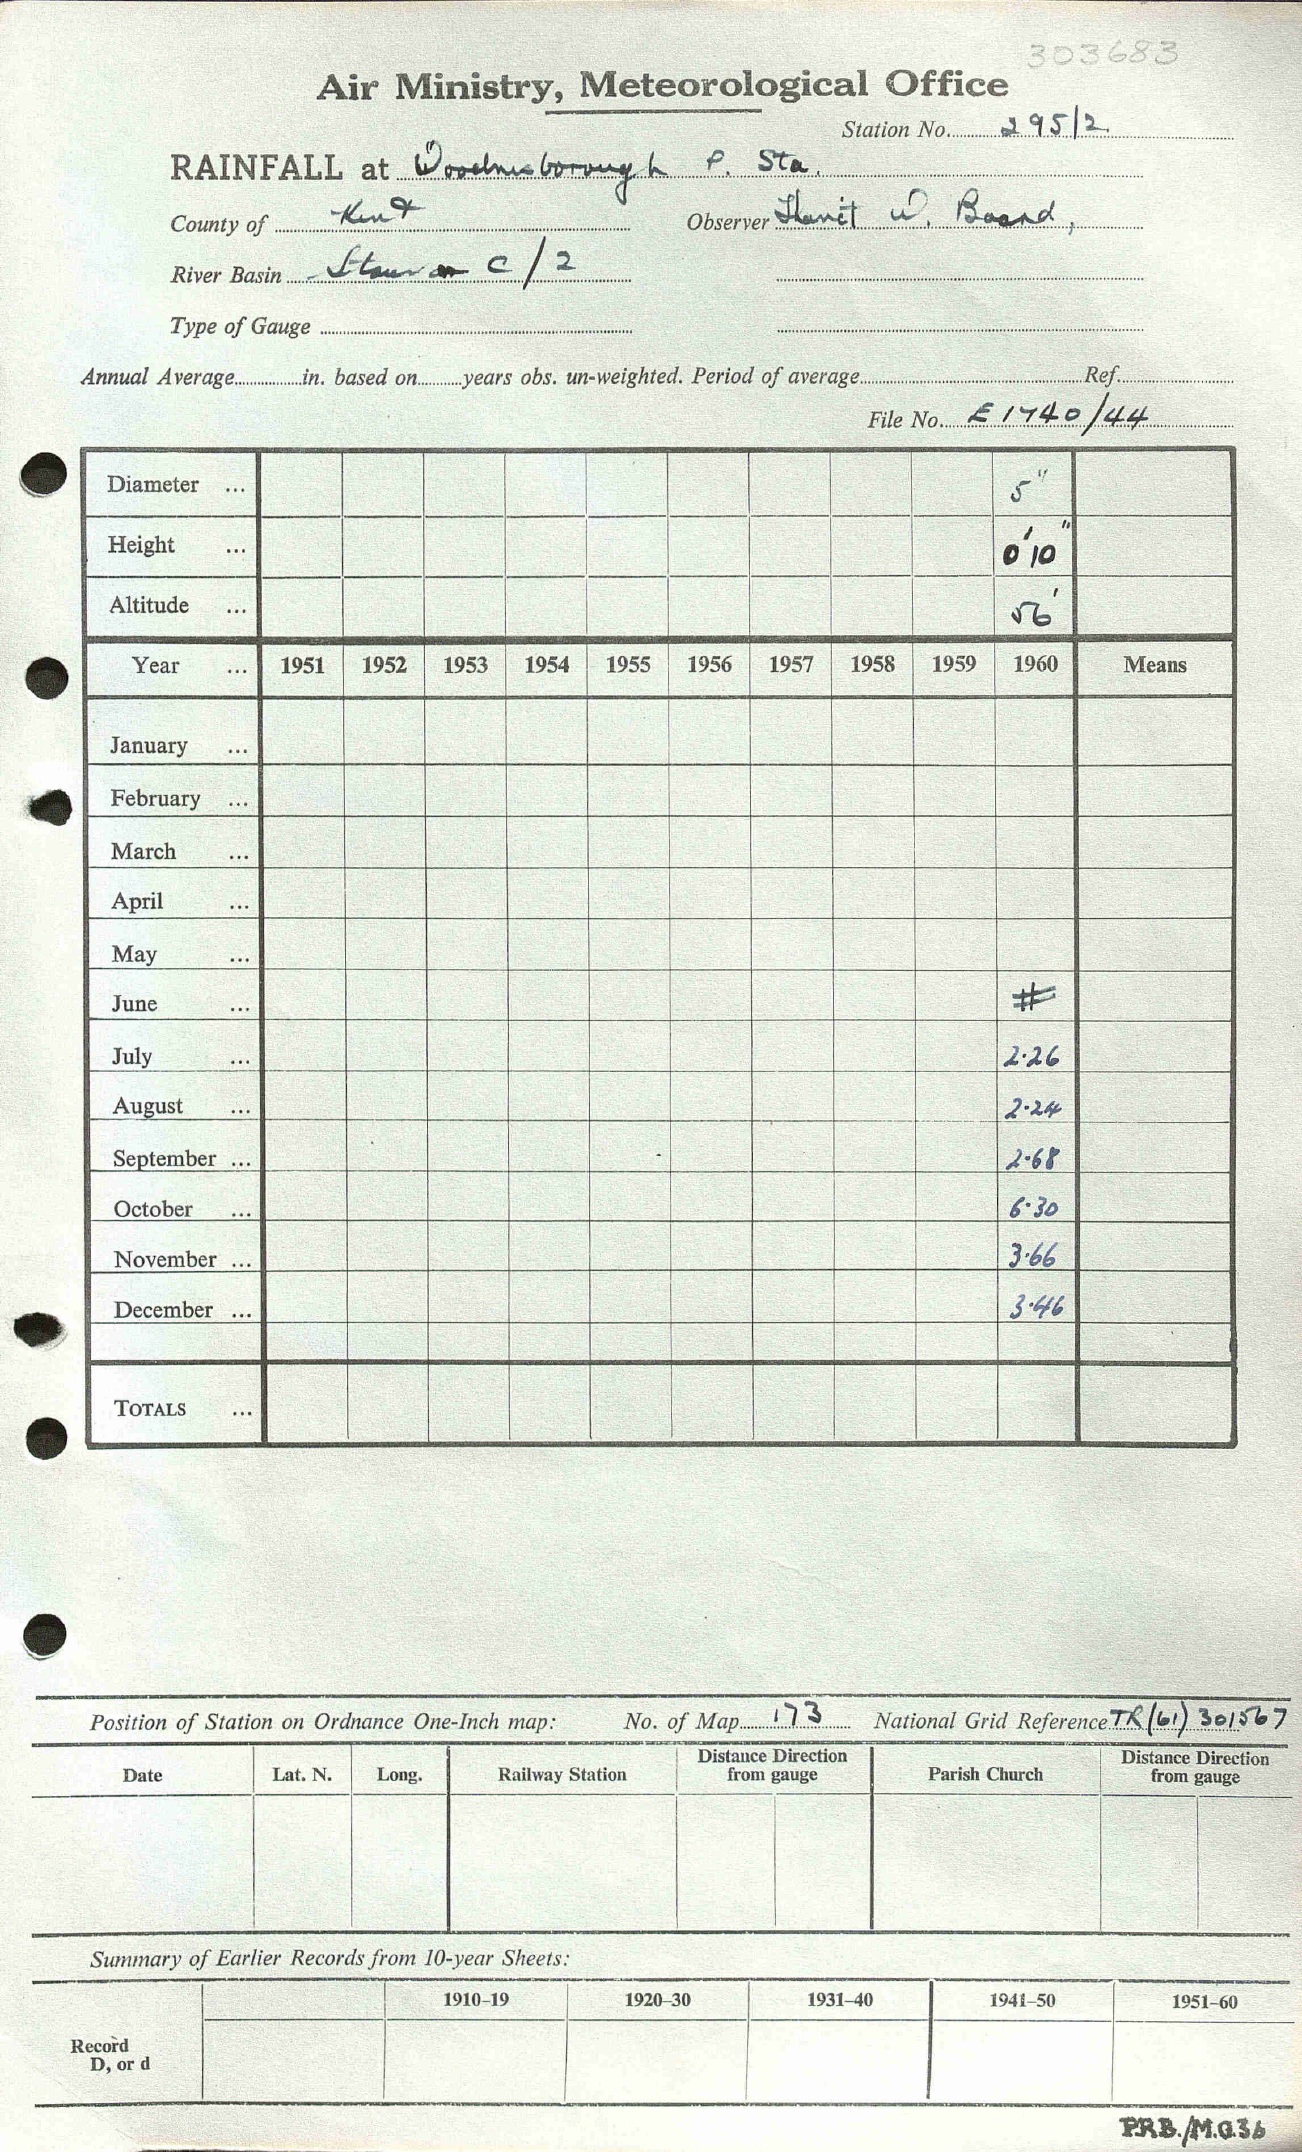 303683
Air Ministry, Meteorological Office
Station No. 295/2
RAINFALL at Woodnesborough P. Sta.
County of Kent Observer Thanet W. Board,
River Basin Stour C/2
Type of Gauge
Annual Average in. based on years obs. un-weighted. Period of average Ref.
File No. E 1740/44
Diameter ... 5"
Height ... 0'10"
Altitude ... 56'
Year ... 1951 1952 1953 1954 1955 1956 1957 1958 1959 1960 Means
January ...
February ...
March ...
April ...
May ...
June ... #
July ... 2.26
August ... 2.24
September ... 2.68
October ... 6.30
November ... 3.66
December ... 3.46
TOTALS ...
Position of Station on Ordnance One-Inch map: No. of Map 173 National Grid Reference TR (61) 301567
Date Lat. N. Long. Railway Station Distance Direction from gauge Parish Church Distance Direction from gauge
Summary of Earlier Records from 10-year Sheets:
1910-19 1920-30 1931-40 1941-50 1951-60
Record
D, or d
P.R.B./M.O.36